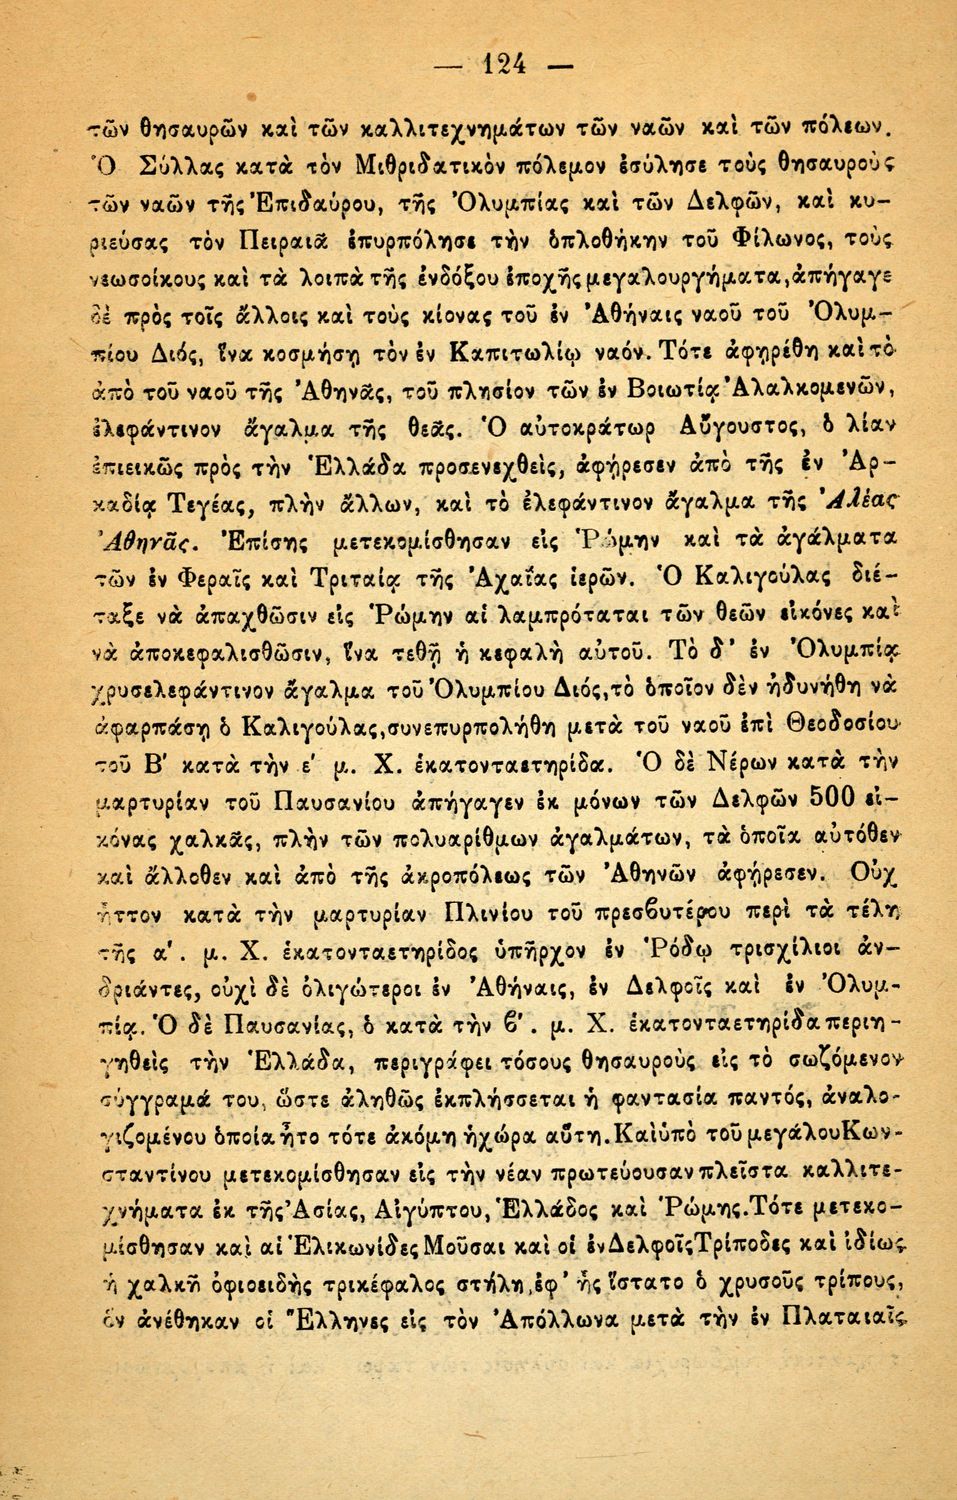 — 124 —
τῶν θησαυρῶν καὶ τῶν καλλιτεχνημάτων τῶν ναῶν καὶ τῶν πόλεων.
Ὁ Σύλλας κατὰ τὸν Μιθριδατικὸν πόλεμον ἐσύλησε τοὺς θησαυροὺς
τῶν ναῶν τῆς Ἐπιδαύρου, τῆς Ὀλυμπίας καὶ τῶν Δελφῶν, καὶ κυ-
ριεύσας τὸν Πειραιᾶ ἐπυρπόλησε τὴν ὁπλοθήκην τοῦ Φίλωνος, τοὺς
νεωσοίκους καὶ τὰ λοιπὰ τῆς ἐνδόξου ἐποχῆς μεγαλουργήματα, ἀπήγαγε
δὲ πρὸς τοῖς ἄλλοις καὶ τοὺς κίονας τοῦ ἐν Ἀθήναις ναοῦ τοῦ Ὀλυμ-
πίου Διός, ἵνα κοσμήσῃ τὸν ἐν Καπιτωλίῳ ναόν. Τότε ἀφῃρέθη καὶ τὸ
ἀπὸ τοῦ ναοῦ τῆς Ἀθηνᾶς, τοῦ πλησίον τῶν ἐν Βοιωτίᾳ Ἀλαλκομενῶν,
ἐλεφάντινον ἄγαλμα τῆς θεᾶς. Ὁ αὐτοκράτωρ Αὔγουστος, ὁ λίαν
ἐπιεικῶς πρὸς τὴν Ἑλλάδα προσενεχθεὶς, ἀφῄρεσεν ἀπὸ τῆς ἐν Ἀρ-
καδίᾳ Τεγέας, πλὴν ἄλλων, καὶ τὸ ἐλεφάντινον ἄγαλμα τῆς Ἀλέας
Ἀθηνᾶς. Ἐπίσης μετεκομίσθησαν εἰς Ῥώμην καὶ τὰ ἀγάλματα
τῶν ἐν Φεραῖς καὶ Τριταίᾳ τῆς Ἀχαΐας ἱερῶν. Ὁ Καλιγούλας διέ-
ταξε νὰ ἀπαχθῶσιν εἰς Ῥώμην αἱ λαμπρόταται τῶν θεῶν εἰκόνες καὶ
νὰ ἀποκεφαλισθῶσιν, ἵνα τεθῇ ἡ κεφαλὴ αὐτοῦ. Τὸ δ' ἐν Ὀλυμπίᾳ
χρυσελεφάντινον ἄγαλμα τοῦ Ὀλυμπίου Διός, τὸ ὁποῖον δὲν ἠδυνήθη νὰ
ἀφαρπάσῃ ὁ Καλιγούλας, συνεπυρπολήθη μετὰ τοῦ ναοῦ ἐπὶ Θεοδοσίου
τοῦ Β' κατὰ τὴν ε' μ. Χ. ἑκατονταετηρίδα. Ὁ δὲ Νέρων κατὰ τὴν
μαρτυρίαν τοῦ Παυσανίου ἀπήγαγεν ἐκ μόνων τῶν Δελφῶν 500 εἰ-
κόνας χαλκᾶς, πλὴν τῶν πολυαρίθμων ἀγαλμάτων, τὰ ὁποῖα αὐτόθεν
καὶ ἄλλοθεν καὶ ἀπὸ τῆς ἀκροπόλεως τῶν Ἀθηνῶν ἀφῄρεσεν. Οὐχ
ἧττον κατὰ τὴν μαρτυρίαν Πλινίου τοῦ πρεσϐυτέρου περὶ τὰ τέλη
τῆς α'. μ. Χ. ἑκατονταετηρίδος ὑπῆρχον ἐν Ῥόδῳ τρισχίλιοι ἀν-
δριάντες, οὐχὶ δὲ ὀλιγώτεροι ἐν Ἀθήναις, ἐν Δελφοῖς καὶ ἐν Ὀλυμ-
πίᾳ. Ὁ δὲ Παυσανίας, ὁ κατὰ τὴν ϐ'. μ. Χ. ἑκατονταετηρίδα περιη-
γηθεὶς τὴν Ἑλλάδα, περιγράφει τόσους θησαυροὺς εἰς τὸ σωζόμενον
σύγγραμά του, ὥστε ἀληθῶς ἐκπλήσσεται ἡ φαντασία παντός, ἀναλο-
γιζομένου ὁποία ἦτο τότε ἀκόμη ἡ χώρα αὕτη. Καὶ ὑπὸ τοῦ μεγάλου Κων-
σταντίνου μετεκομίσθησαν εἰς τὴν νέαν πρωτεύουσαν πλεῖστα καλλιτε-
χνήματα ἐκ τῆς Ἀσίας, Αἰγύπτου, Ἑλλάδος καὶ Ῥώμης. Τότε μετεκο-
μίσθησαν καὶ αἱ Ἑλικωνίδες Μοῦσαι καὶ οἱ ἐν Δελφοῖς Τρίποδες καὶ ἰδίως
ἡ χαλκῆ ὀφιοειδὴς τρικέφαλος στήλη, ἐφ' ἧς ἵστατο ὁ χρυσοῦς τρίπους,
ὃν ἀνέθηκαν οἱ Ἕλληνες εἰς τὸν Ἀπόλλωνα μετὰ τὴν ἐν Πλαταιαῖς